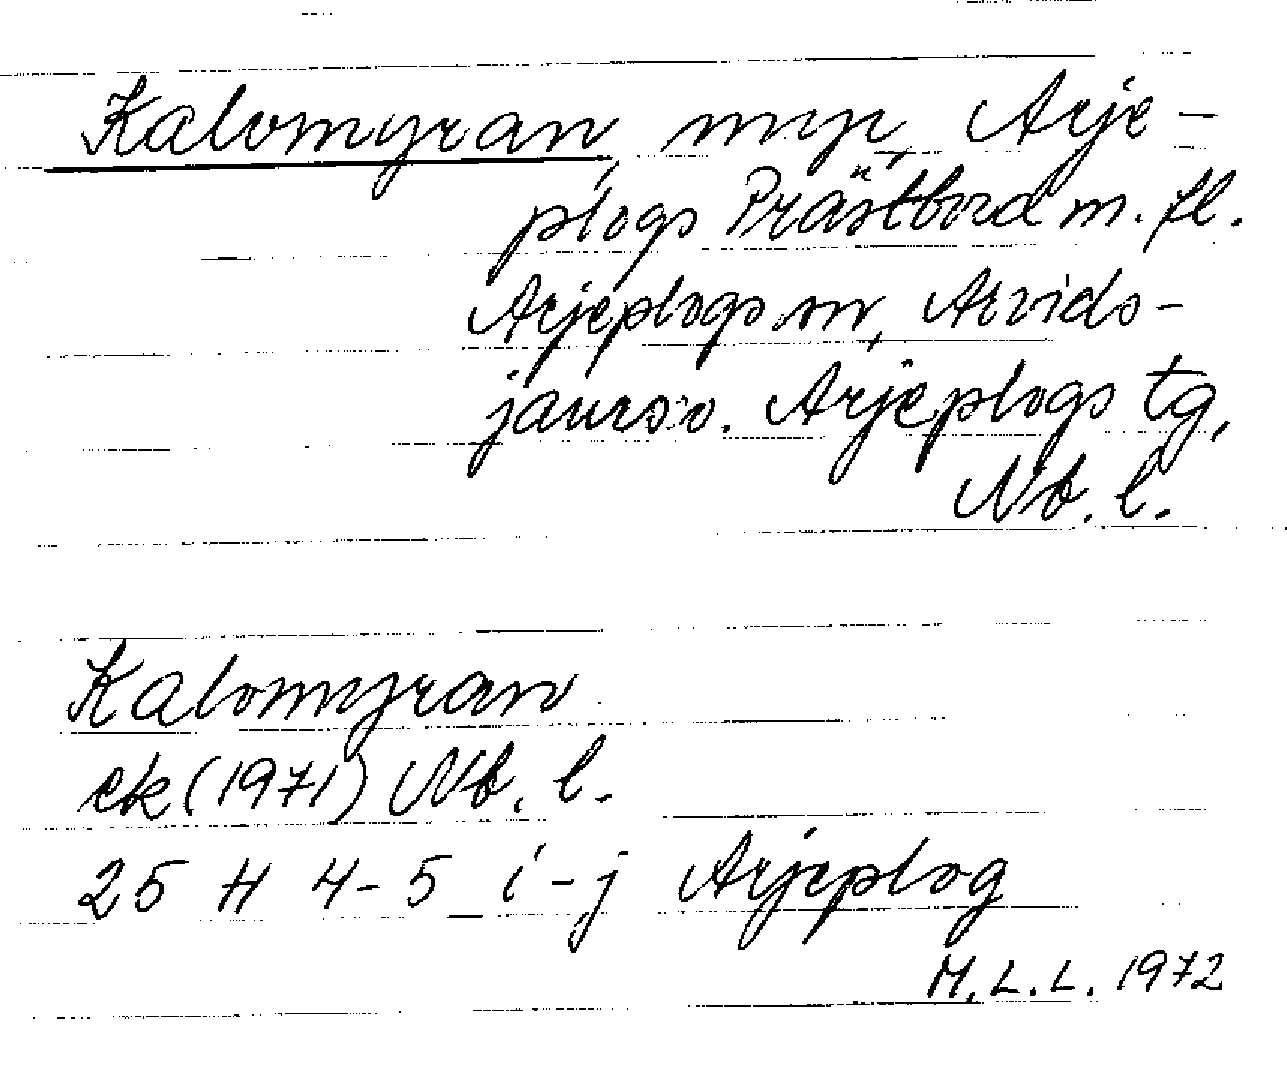 Kalomyran, myr, Arje-
plogs Prästbord m. fl.
Arjeplogs sn, Arvids-
jaurs o. Arjeplogs tg,
Nb. l.
Kalomyran
ek (1971) Nb. l.
25 H 4-5 i-j Arjeplog
M. L. L. 1972